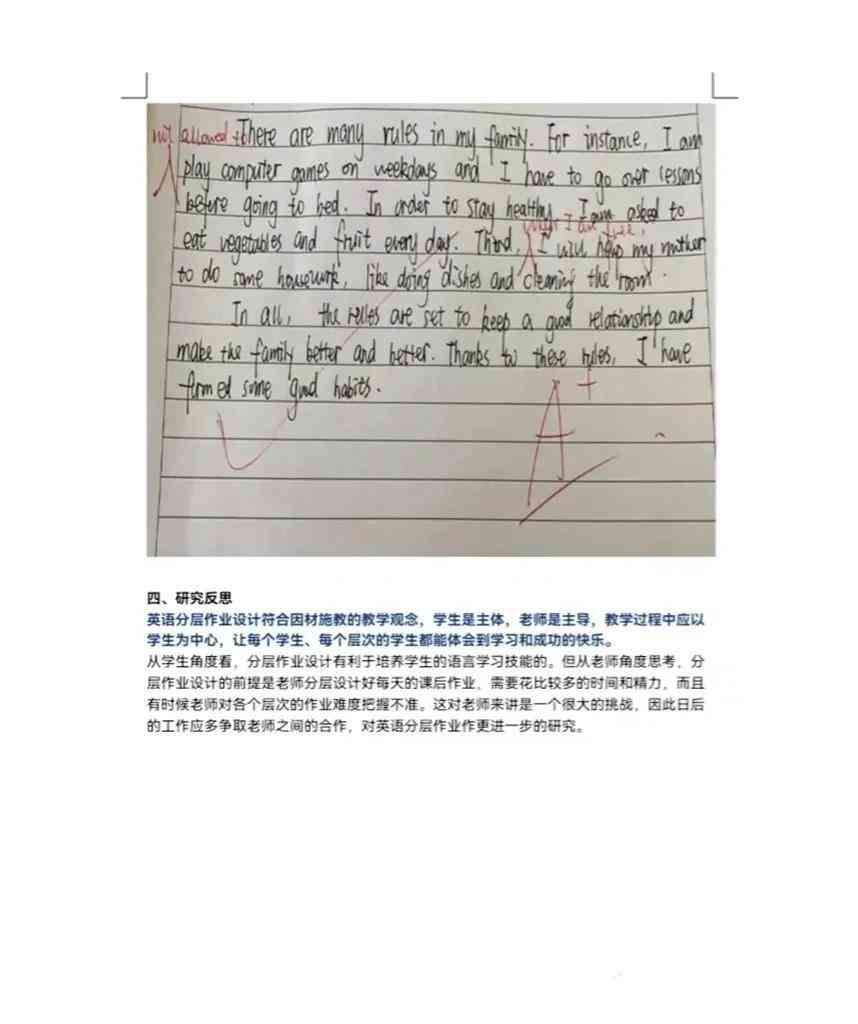 not allowed to There are many rules in my family. For instance, I am
play computer games on weekdays and I have to go over lessons
before going to bed. In order to stay healthy, I am asked to
when I am free,
eat vegetables and fruit every day. Third, I will help my mother
to do some housework, like doing dishes and cleaning the room.
In all, the rules are set to keep a good relationship and
make the family better and better. Thanks to these rules, I have
formed some good habits.
A+
四、研究反思
英语分层作业设计符合因材施教的教学观念，学生是主体，老师是主导，教学过程中应以
学生为中心，让每个学生、每个层次的学生都能体会到学习和成功的快乐。
从学生角度看，分层作业设计有利于培养学生的语言学习技能的。但从老师角度思考，分
层作业设计的前提是老师分层设计好每天的课后作业，需要花比较多的时间和精力，而且
有时候老师对各个层次的作业难度把握不准。这对老师来讲是一个很大的挑战，因此日后
的工作应多争取老师之间的合作，对英语分层作业作更进一步的研究。